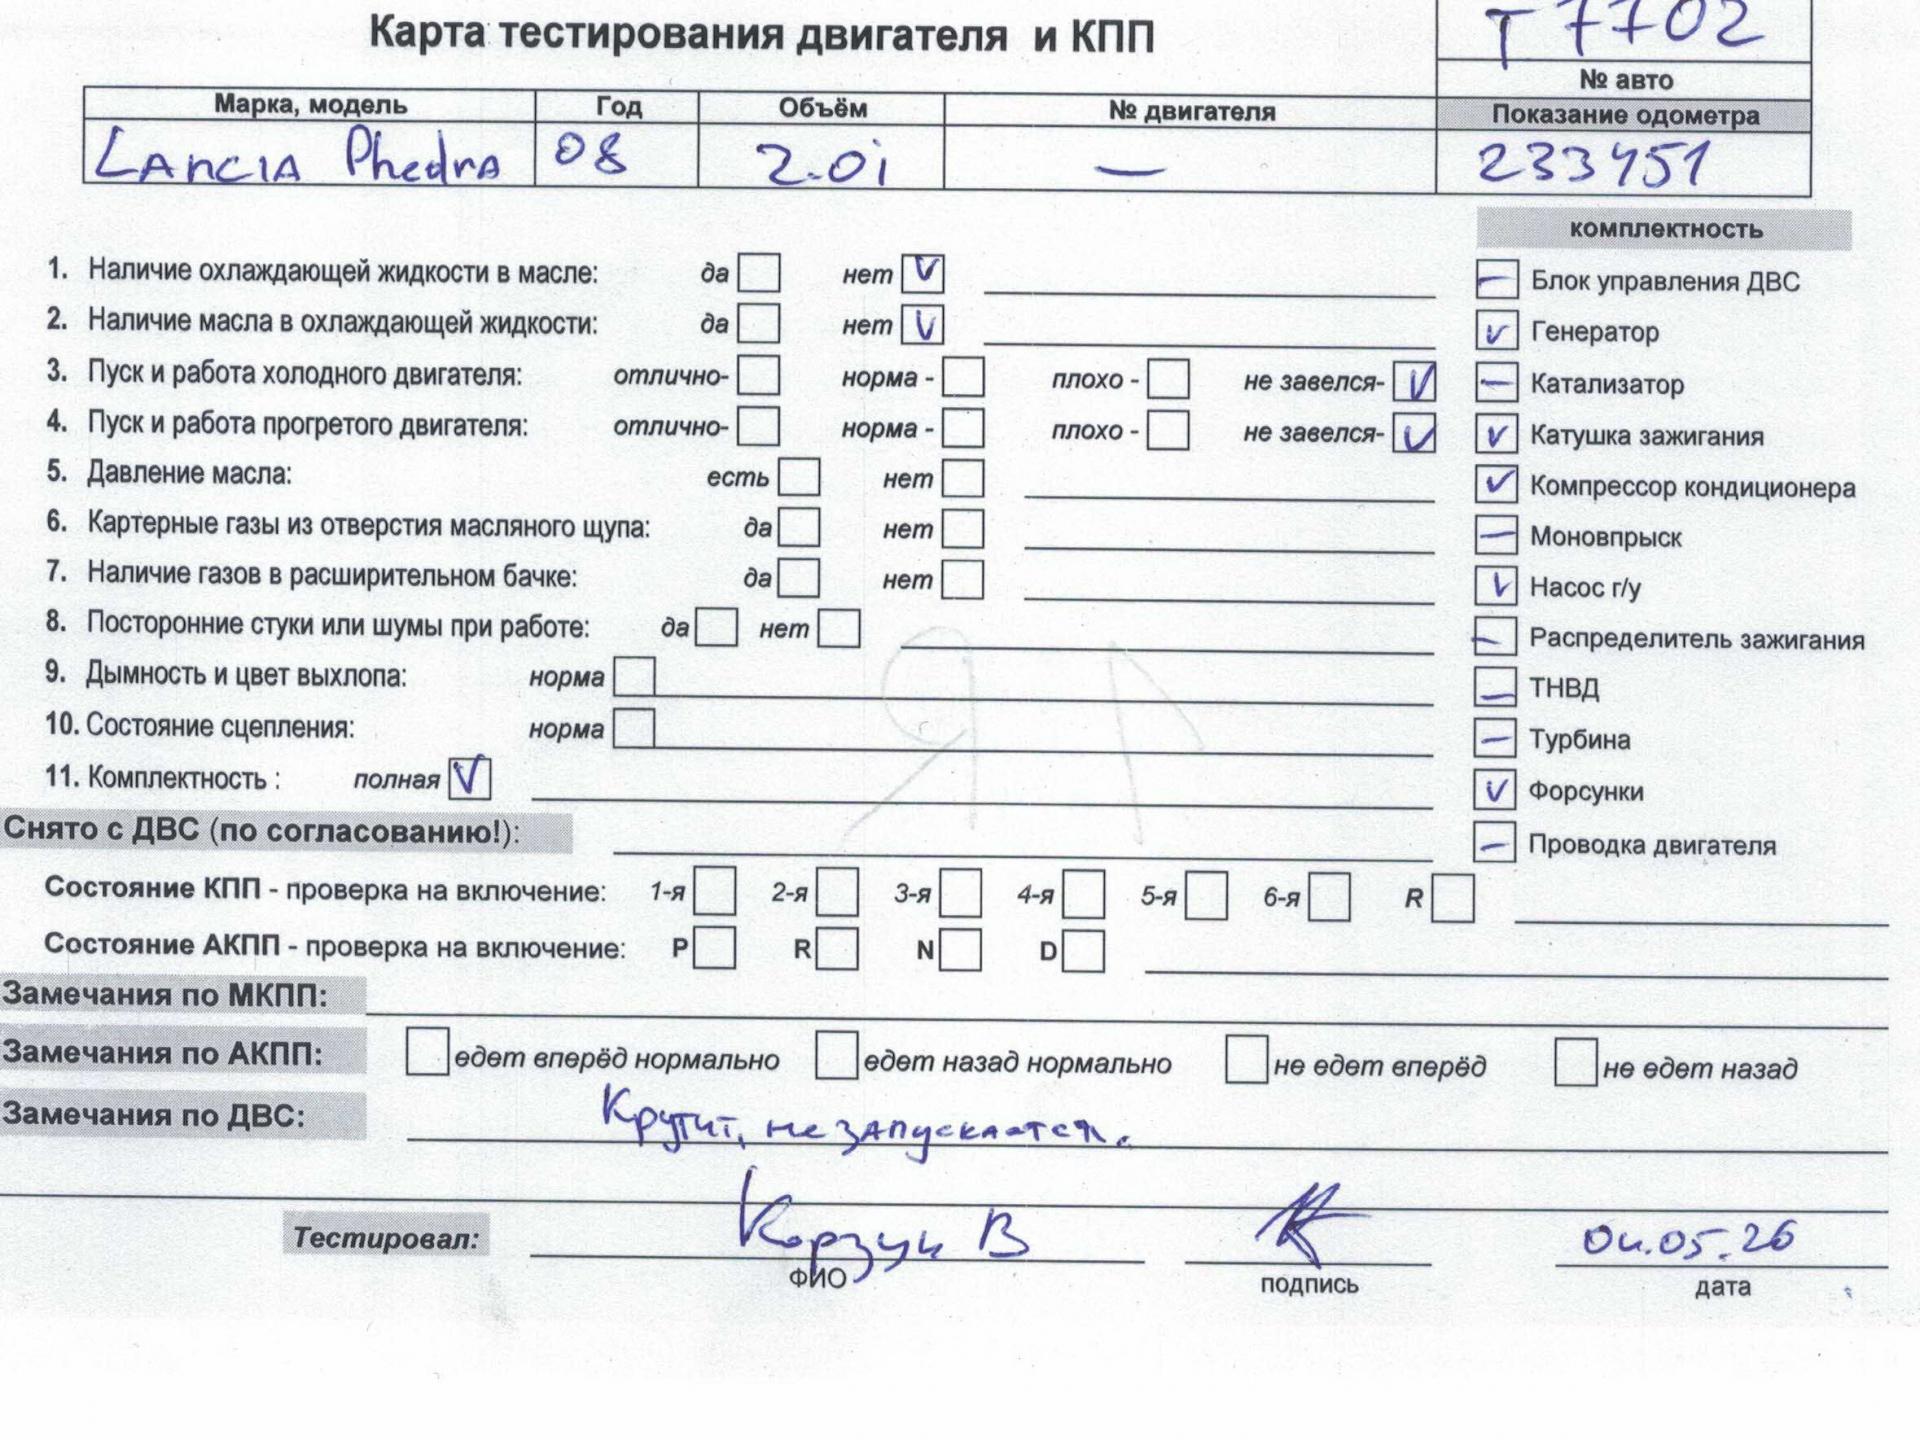 Карта тестирования двигателя и КПП
т 7702
№ авто
Марка, модель Год Объём № двигателя Показание одометра
Lancia Phedra 08 2.0i — 233451
комплектность
1. Наличие охлаждающей жидкости в масле: да нет V
2. Наличие масла в охлаждающей жидкости: да нет V
3. Пуск и работа холодного двигателя: отлично- норма - плохо - не завелся- V
4. Пуск и работа прогретого двигателя: отлично- норма - плохо - не завелся- V
5. Давление масла: есть нет
6. Картерные газы из отверстия масляного щупа: да нет
7. Наличие газов в расширительном бачке: да нет
8. Посторонние стуки или шумы при работе: да нет
9. Дымность и цвет выхлопа: норма
10. Состояние сцепления: норма
11. Комплектность : полная V
— Блок управления ДВС
V Генератор
— Катализатор
V Катушка зажигания
V Компрессор кондиционера
— Моновпрыск
V Насос г/у
— Распределитель зажигания
— ТНВД
— Турбина
V Форсунки
— Проводка двигателя
Снято с ДВС (по согласованию!):
Состояние КПП - проверка на включение: 1-я 2-я 3-я 4-я 5-я 6-я R
Состояние АКПП - проверка на включение: P R N D
Замечания по МКПП:
Замечания по АКПП: едет вперёд нормально едет назад нормально не едет вперёд не едет назад
Замечания по ДВС: Крутит, не запускается.
Тестировал: Корзун В 04.05.26
ФИО подпись дата